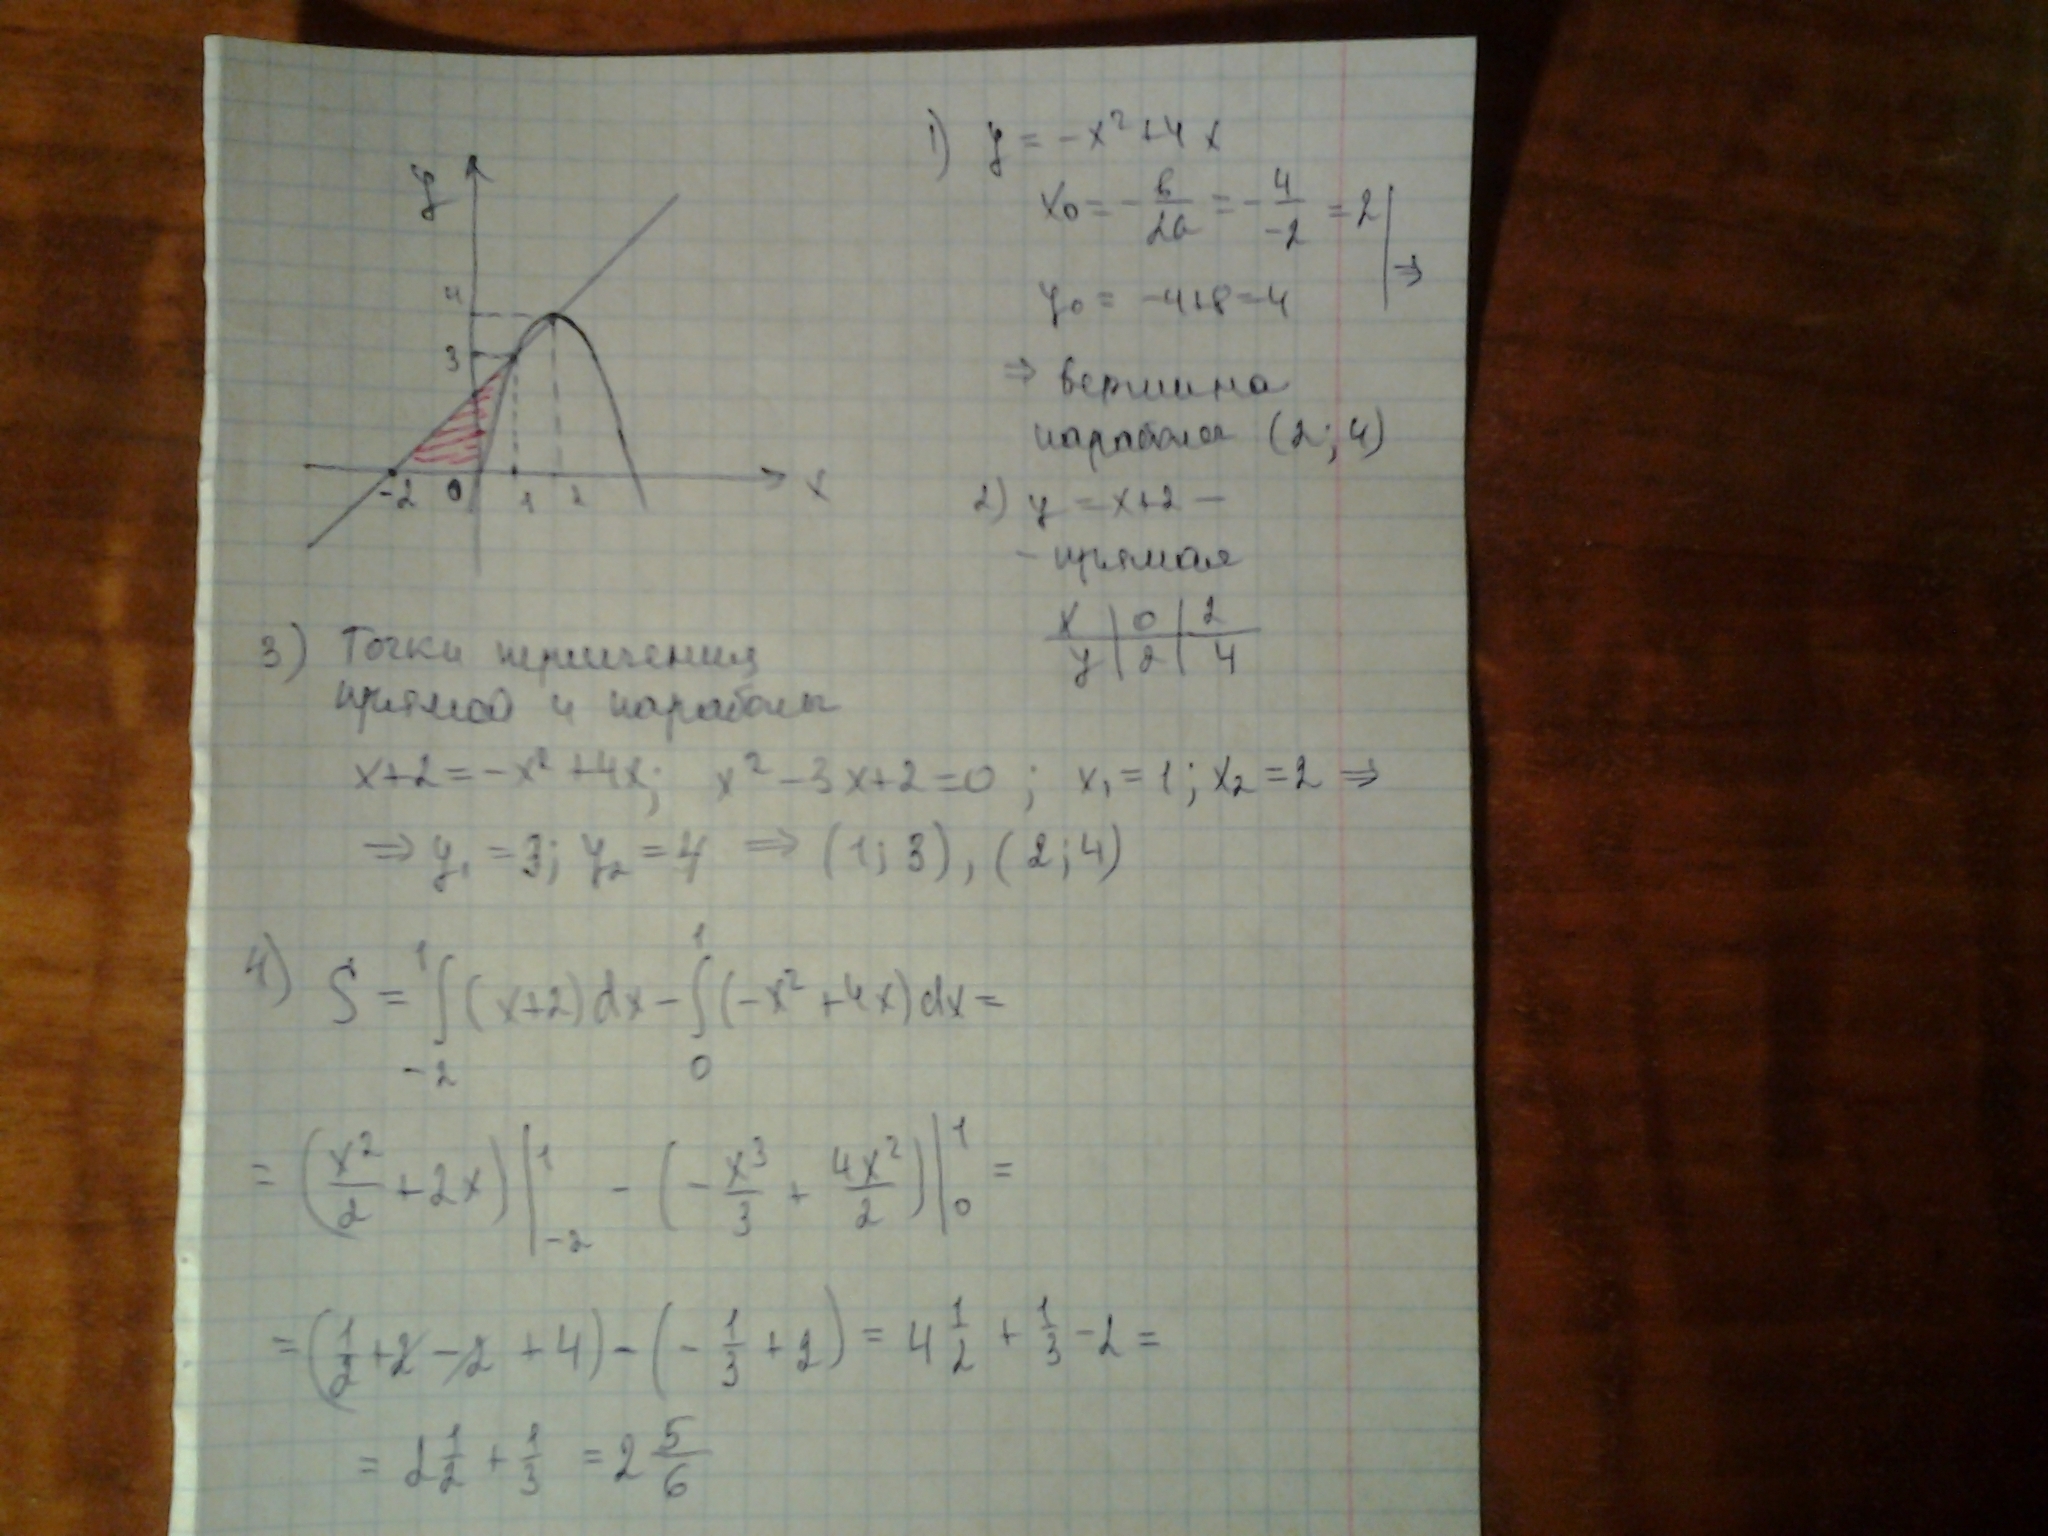 y
4
3
-2 0 1 2 x
1) y = -x² + 4x
x₀ = -в/2a = -4/-2 = 2 | ⇒
y₀ = -4+8=4
⇒ вершина
параболы (2; 4)
2) y = x+2 –
– прямая
x | 0 | 2
y | 2 | 4
3) Точки пересечения
прямой и параболы
x+2 = -x² + 4x; x² - 3x + 2 = 0; x₁ = 1; x₂ = 2 ⇒
⇒ y₁ = 3; y₂ = 4 ⇒ (1; 3), (2; 4)
4) S = ∫₋₂¹ (x+2)dx - ∫₀¹ (-x² + 4x)dx =
= (x²/2 + 2x)|₋₂¹ - (-x³/3 + 4x²/2)|₀¹ =
= (1/2 + 2 - 2 + 4) - (-1/3 + 2) = 4 1/2 + 1/3 - 2 =
= 2 1/2 + 1/3 = 2 5/6